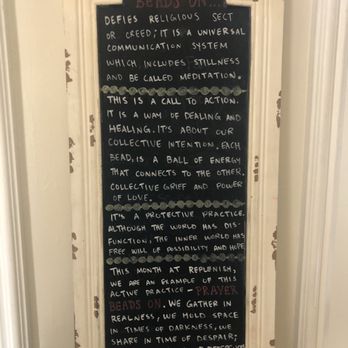 BEADS ON...
DEFIES RELIGIOUS SECT
OR CREED; IT IS A UNIVERSAL
COMMUNICATION SYSTEM
WHICH INCLUDES STILLNESS
AND BE CALLED MEDITATION.
THIS IS A CALL TO ACTION.
IT IS A WAY OF DEALING AND
HEALING. IT'S ABOUT OUR
COLLECTIVE INTENTION. EACH
BEAD, IS A BALL OF ENERGY
THAT CONNECTS TO THE OTHER.
COLLECTIVE GRIEF AND POWER
OF LOVE.
IT'S A PROTECTIVE PRACTICE.
ALTHOUGH THE WORLD HAS DIS-
FUNCTION, THE INNER WORLD HAS
FREE WILL OF POSSIBILITY AND HOPE
THIS MONTH AT REPLENISH,
WE ARE AN EXAMPLE OF THIS
ACTIVE PRACTICE - PRAYER
BEADS ON. WE GATHER IN
REALNESS, WE HOLD SPACE
IN TIMES OF DARKNESS, WE
SHARE IN TIME OF DESPAIR;